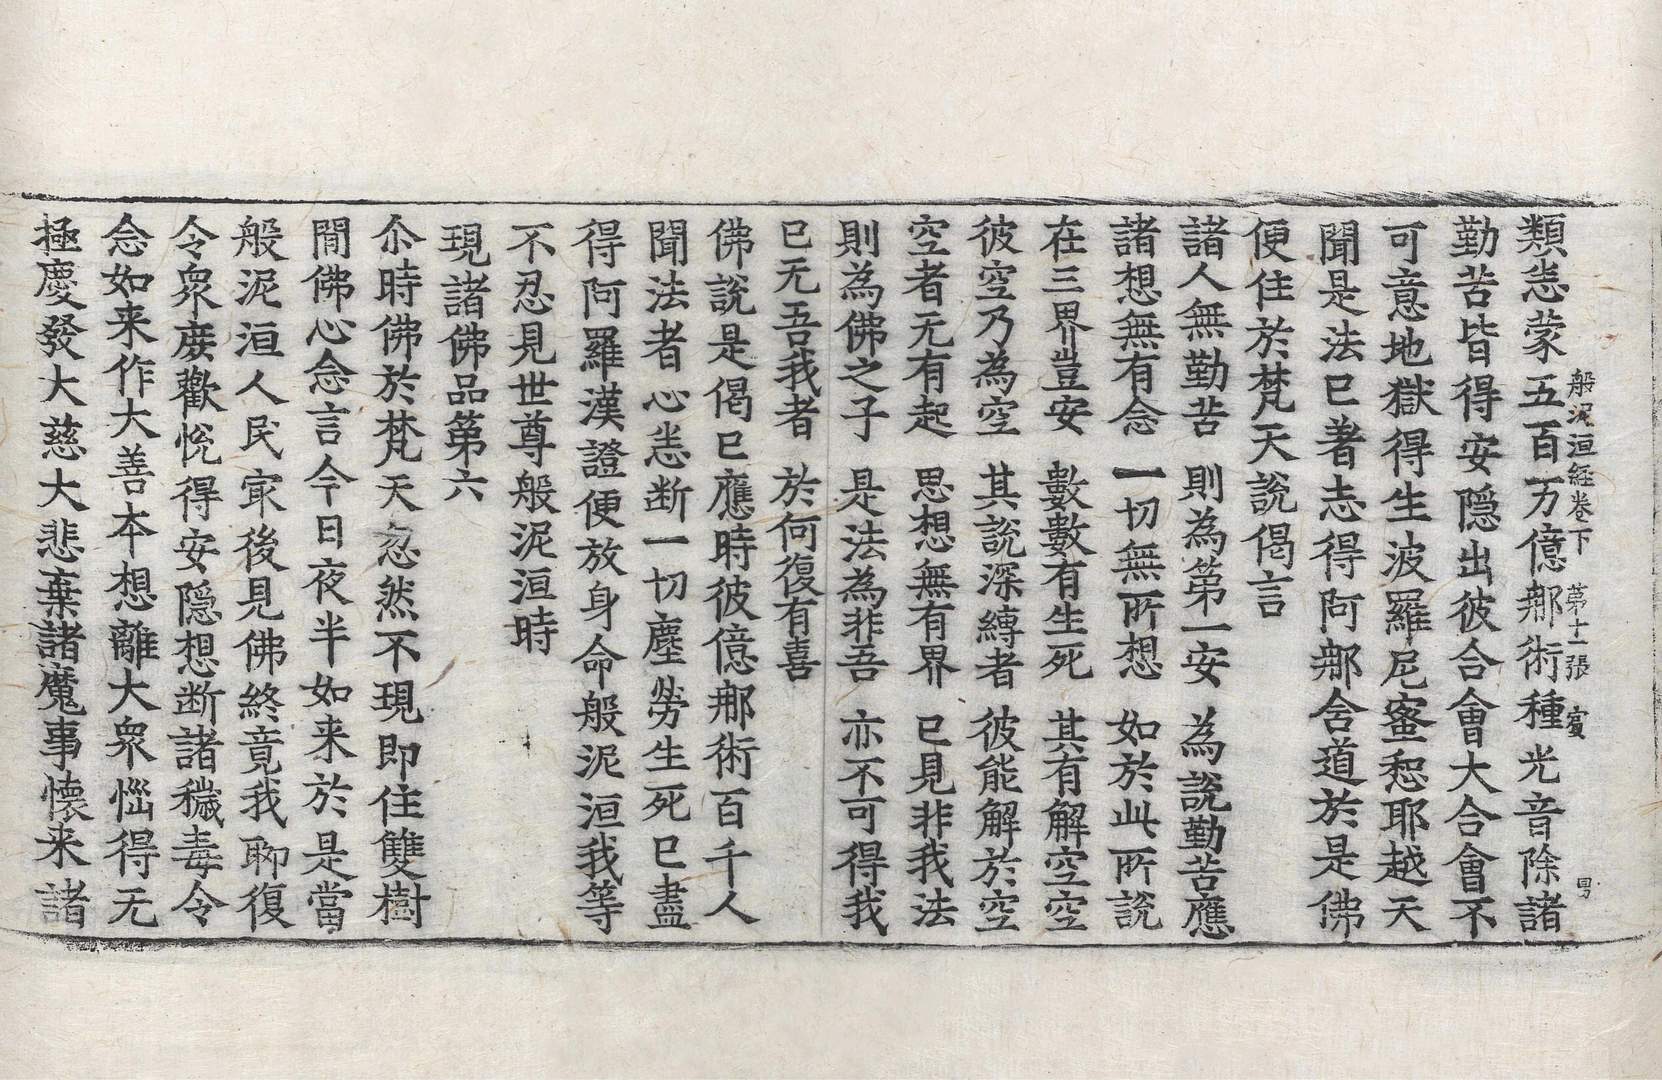 般泥洹經卷下 第十一張 賓
類恙蒙五百万億𨚗術種光音除諸
勤苦皆得安隱出彼合會大合會不
可意地獄得生波羅尼蜜惒耶越天
聞是法已著志得阿𨚗含道於是佛
便住於梵天說偈言
諸人無勤苦 則為第一安 為說勤苦應
諸想無有念 一切無所想 如於此所說
在三界豈安 數數有生死 其有解空空
彼空乃為空 其說深縛者 彼能解於空
空者无有起 思想無有界 已見非我法
則為佛之子 是法為非吾 亦不可得我
已无吾我者 於何復有喜
佛說是偈已應時彼億𨚗術百千人
聞法者心恙断一切塵勞生死已盡
得阿羅漢證便放身命般泥洹我等
不忍見世尊般泥洹時
現諸佛品第六
尒時佛於梵天忽然不現即住雙樹
閒佛心念言今日夜半如来於是當
般泥洹人民㝡後見佛終竟我聊復
令衆庶歡恱得安隱想断諸穢毒令
念如来作大善本想離大衆惱得无
極慶發大慈大悲棄諸魔事懷来諸